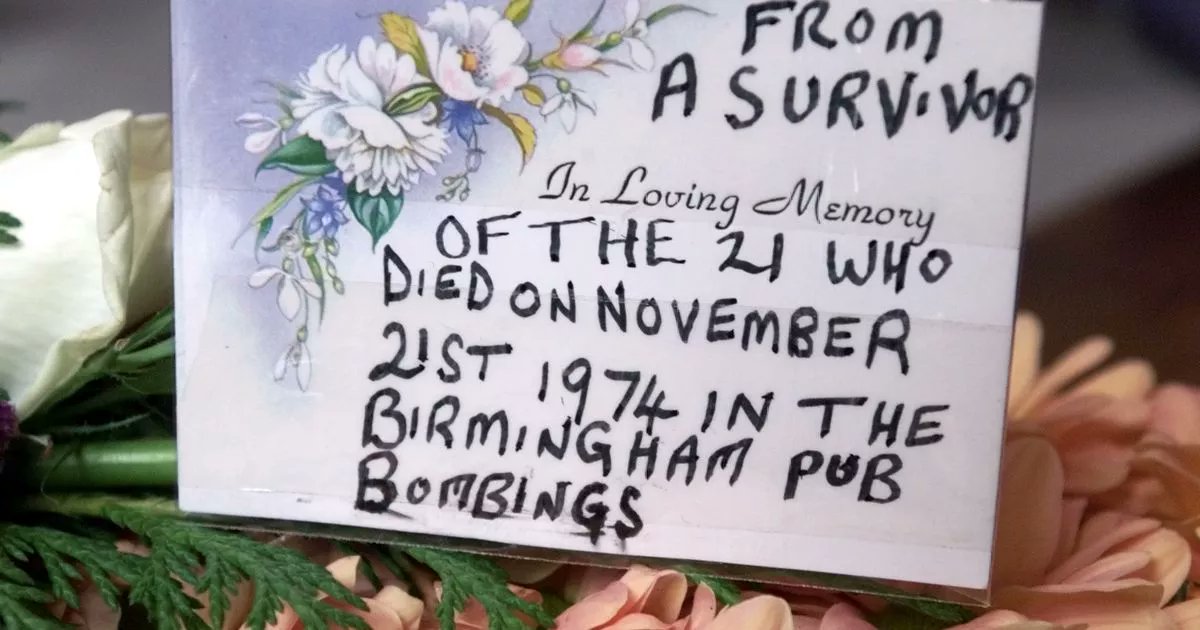 FROM
A SURVIVOR
In Loving Memory
OF THE 21 WHO
DIED ON NOVEMBER
21ST 1974 IN THE
BIRMINGHAM PUB
BOMBINGS